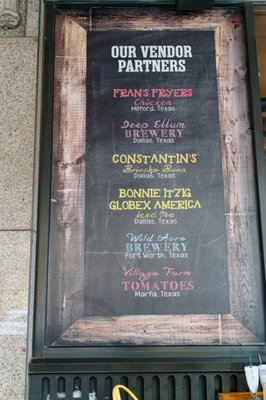 OUR VENDOR
PARTNERS
FRAN'S FRYERS
Chicken
Milford, Texas
Deep Ellum
BREWERY
Dallas, Texas
CONSTANTIN'S
Brioche Buns
Dallas, Texas
BONNIE ITZIG
GLOBEX AMERICA
Iced Tea
Dallas, Texas
Wild Acre
BREWERY
Fort Worth, Texas
Village Farm
TOMATOES
Marfa, Texas